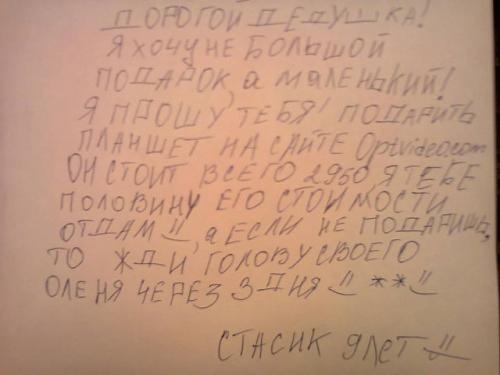 ДОРОГОЙ ДЕДУШКА!
Я ХОЧУ НЕ БОЛЬШОЙ
ПОДАРОК, а МАЛЕНЬКИЙ!
Я ПРОШУ ТЕБЯ! ПОДАРИТЬ
ПЛАНШЕТ НА САЙТЕ Optvideo.com
ОН СТОИТ ВСЕГО 2950 Я ТЕБЕ
ПОЛОВИНУ ЕГО СТОИМОСТИ
ОТДАМ, а ЕСЛИ НЕ ПОДАРИШЬ,
ТО ЖДИ ГОЛОВУ СВОЕГО
ОЛЕНЯ ЧЕРЕЗ 3 ДНЯ **
СТАСИК 9 ЛЕТ